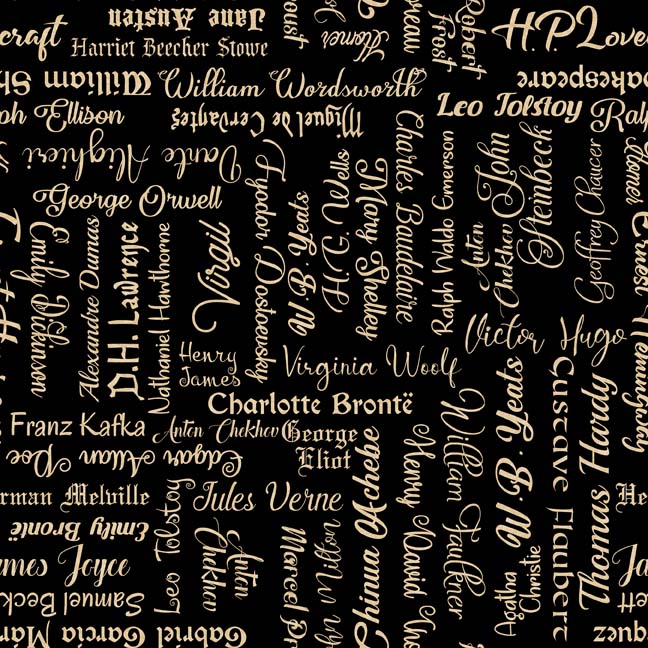 Jane Austen
Harriet Beecher Stowe
Homer
Robert
Frost
H.P. Love
craft
William Sh
akespeare
William Wordsworth
ph Ellison
Ralp
Miguel de Cervantes
Leo Tolstoy
Dante Alighieri
George Orwell
Charles Baudelaire
Ralph Waldo Emerson
Anton
Chekhov
John
Steinbeck
Geoffrey Chaucer
Homer
Ernest Hemingway
Emily Dickinson
Alexandre Dumas
D.H. Lawrence
Nathaniel Hawthorne
Virgil
Fyodor Dostoevsky
W. B. Yeats
H. G. Wells
Mary Shelley
Henry
James
Virginia Woolf
Victor Hugo
Charlotte Brontë
Franz Kafka
Anton Chekhov
George
Eliot
Edgar Allan Poe
rman Melville
He
Jules Verne
Emily Brontë
ames Joyce
Ja
Samuel Beck
ett
Gabriel Garcia Már
quez
Leo Tolstoy
Anton
Chekhov
Marcel Pr
oust
hn Milton
Chinua Achebe
Henry David Tho
reau
William Faulkner
W. B. Yeats
Agatha
Christie
Gustave Flaubert
Thomas Hardy